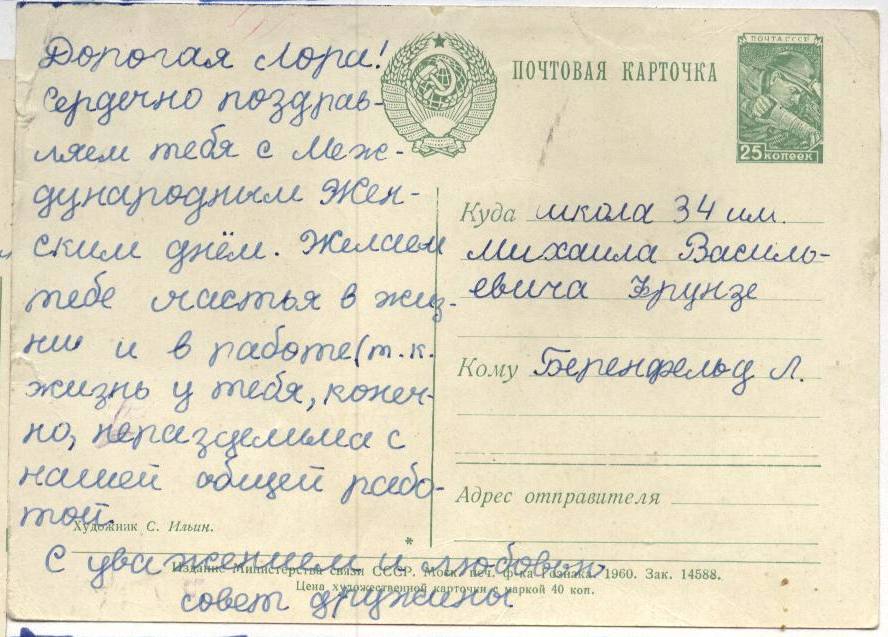 Дорогая Лора!
Сердечно поздрав-
ляем тебя с Меж-
дународным Жен-
ским днём. Желаем
тебе счастья в жиз-
ни и в работе (т.к.
жизнь у тебя, конеч-
но, неразделима с
нашей общей рабо-
той.
С уважением и любовью
совет дружины
ПОЧТОВАЯ КАРТОЧКА
ПОЧТА СССР
25 КОПЕЕК
Куда школа 34 им.
Михаила Василь-
евича Фрунзе
Кому Беренфельд Л.
Адрес отправителя
Художник С. Ильин.
*
Издание Министерства связи СССР. Моск. печ. ф-ка Гознака. 1960. Зак. 14588.
Цена художественной карточки с маркой 40 коп.